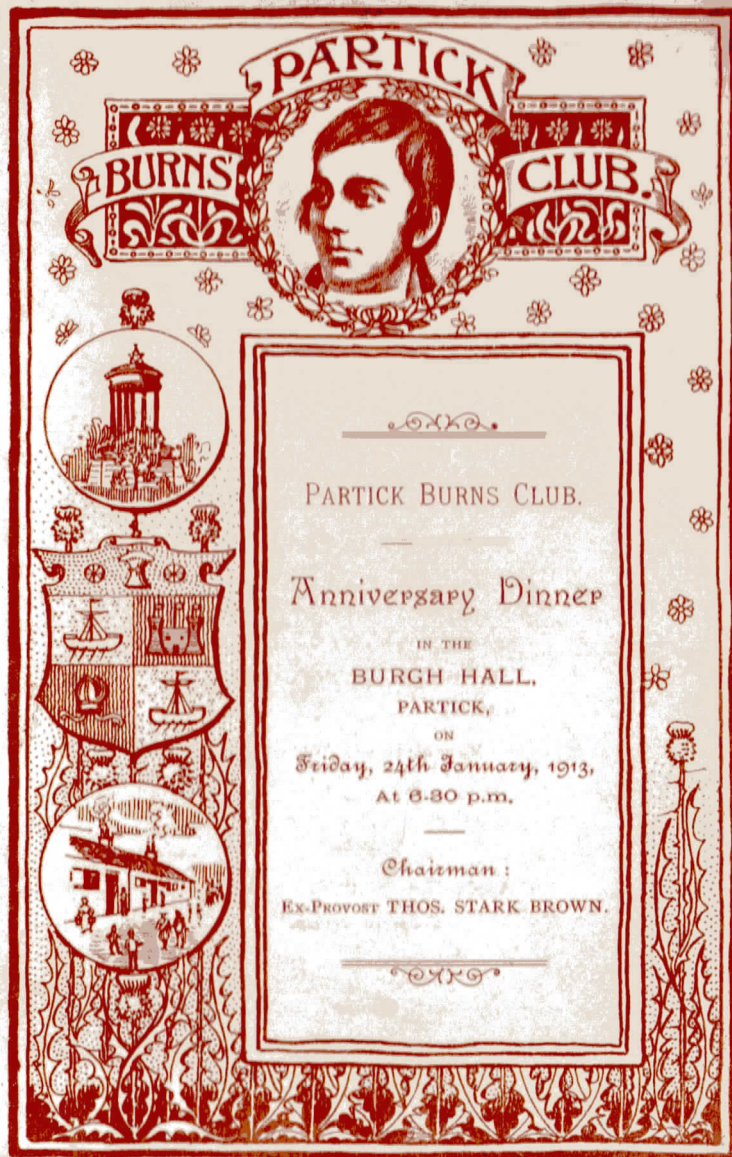 PARTICK
BURNS' CLUB.
PARTICK BURNS CLUB.
Anniversary Dinner
IN THE
BURGH HALL,
PARTICK,
ON
Friday, 24th January, 1913,
At 6-30 p.m.
Chairman :
EX-PROVOST THOS. STARK BROWN.